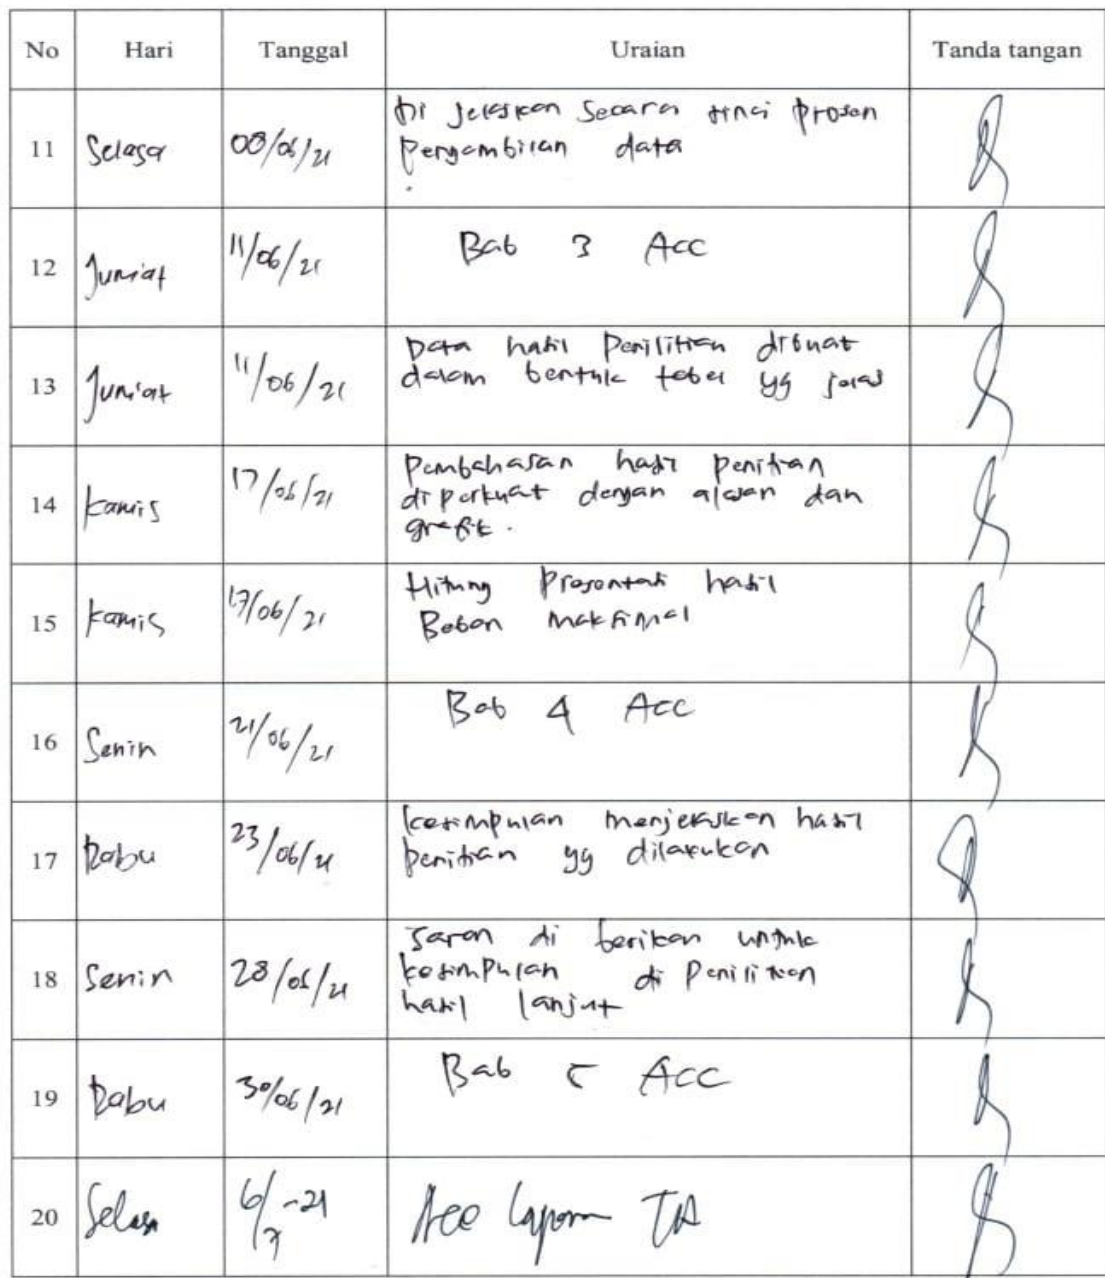 No Hari Tanggal Uraian Tanda tangan
11 Selasa 08/06/21 Di jelaskan Secara rinci proses
Pengambilan data
12 Jum'at 11/06/21 Bab 3 Acc
13 Jum'at 11/06/21 Data hasil Penilitian dibuat
dalam bentuk tabel yg jelas
14 Kamis 17/06/21 Pembahasan hasil penitian
diperkuat dengan alasan dan
grafik.
15 Kamis 17/06/21 Hitung Prosentasi hasil
Beban maksimal
16 Senin 21/06/21 Bab 4 Acc
17 Rabu 23/06/21 kesimpulan menjelaskan hasil
penitian yg dilakukan
18 Senin 28/06/21 Saran di berikan untuk
kesimpulan di Penilitian
hasil lanjut
19 Rabu 30/06/21 Bab 5 Acc
20 Selasa 6/7-21 Acc Laporan TA